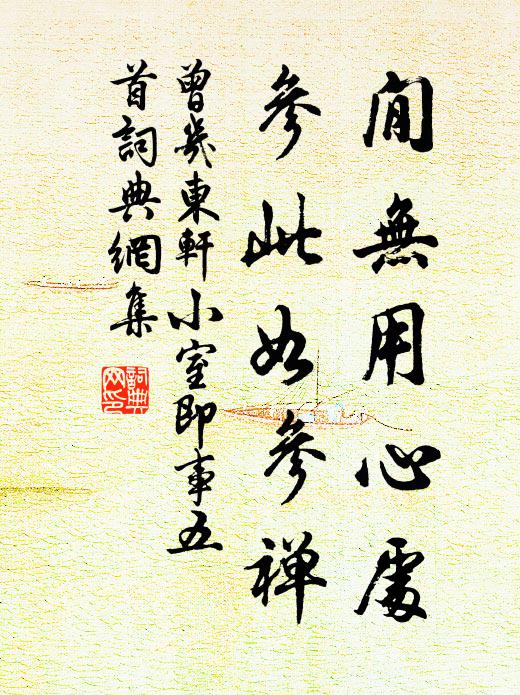 閒無用心處
參此如參禅
曾幾東軒小室即事五
首詞典網集
詞典
网印